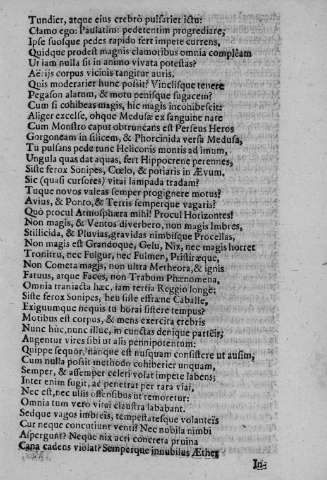 Tundier, atque eius crebrò pulsarier ictu:
Clamo ego: Paulatim: pedetentim progrediare,
Ipse suosque pedes rapido fert impete currens,
Quidque prodest magnis clamoribus omnia complẽam
Ut iam nulla sit in animo vivata potestas?
corpus vicinis tangitur auris.
Quis moderarier hunc possit? Vinclisque tenere
Pegason alatum, & motu penisque fugacem?
Cum si cohibeas magis, hic magis incohibescit:
Aliger excelse, ohque Medusæ ex sanguine nate
Cum Monstro caput obtruncans est Perseus Heros
Gorgoneam in silicem, & Phorcinida versa Medusa,
Tu pulsans pede tunc Heliconis montis ad imum,
Ungula quas dat aquas, fert Hippocrene perennes,
Siste ferox Sonipes, Cœlo, & potiaris in Ævum,
Sic (quasi cursores) vitai lampada tradam?
Tuque novos valeas semper progignere motus?
Avius, & Ponto, & Terris semperque vagaris?
Quò procul Atmosphæra mihi? Procul Horizontes?
Non magis, & Ventos diverbero, non magis Imbres,
Stillicida, & Pluvias, gravidas nimbisque Procellas,
Non magis est Grandoque, Gelu, Nix, nec magis horret
Tronitru, nec Fulgur, nec Fulmen,
Non Cometa magis, non ultra Metheora, & ignis
Fatuus, atque Faces, non Trabum Phenomena,
Omnia transacta hæc, iam tertia Reggio longè;
Siste ferox Sonipes, heu siste effræne Caballe,
Exiguumque nequis tu horai sistere tempus?
Motibus est corpus, & mens exercita crebris
Nunc hùc, nunc illuc, in cunctas denique parteis;
Augentur vires sibi ut alis pennipotentum:
Quippe sequor, nanque est nusquam consistere ut ausim,
Cum nulla possit methodo cohiberier unquam,
Semper, & assemper celeri volat impete labens;
Inter enim fugit, ac penetrat per rara viai,
Nec est, nec ullis offensibus ut remoretur:
Omnia tum vero vitai claustra lababant.
Sedque vagos imbreis, tempestatesque volanteis
Cur neque concutiunt venti? Nec nobila nimbi
Aspergunt? Neque nix acri concreta pruina
Cana cadens violat? Semperque innubilus Æther
In-